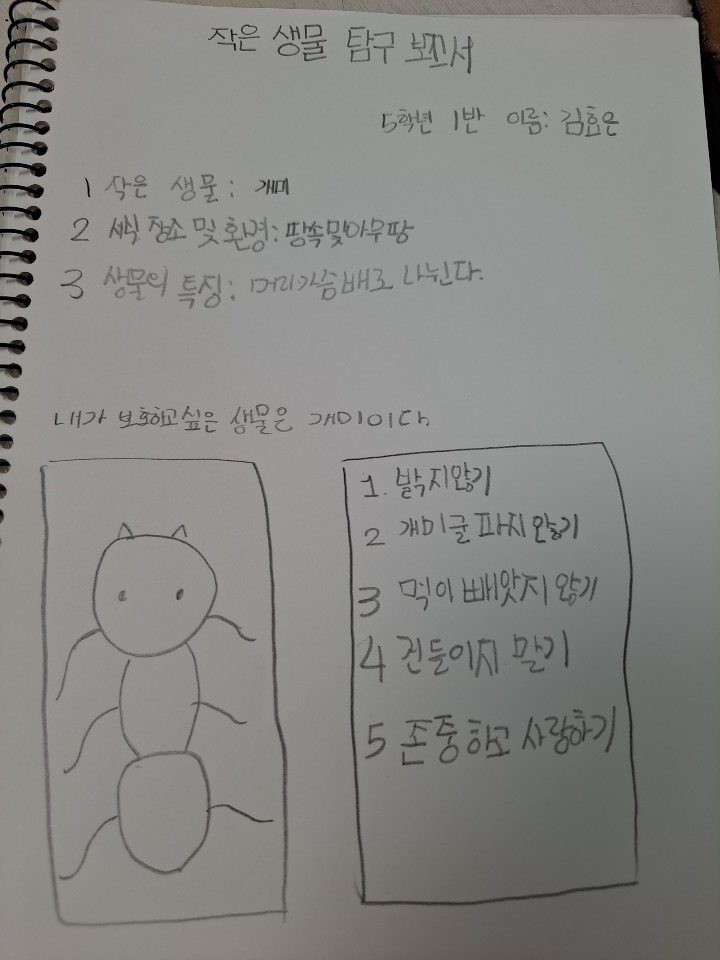 작은 생물 탐구 보고서
5학년 1반 이름: 김효은
1 작은 생물: 개미
2 서식 장소 및 환경: 땅속및아무땅
3 생물의 특징: 머리가슴배로 나뉜다.
내가 보호하고싶은 생물은 개미이다.
1. 밝지않기
2 개미굴 파지 않기
3 먹이 빼앗지 않기
4 건들이지 말기
5 존중하고 사랑하기